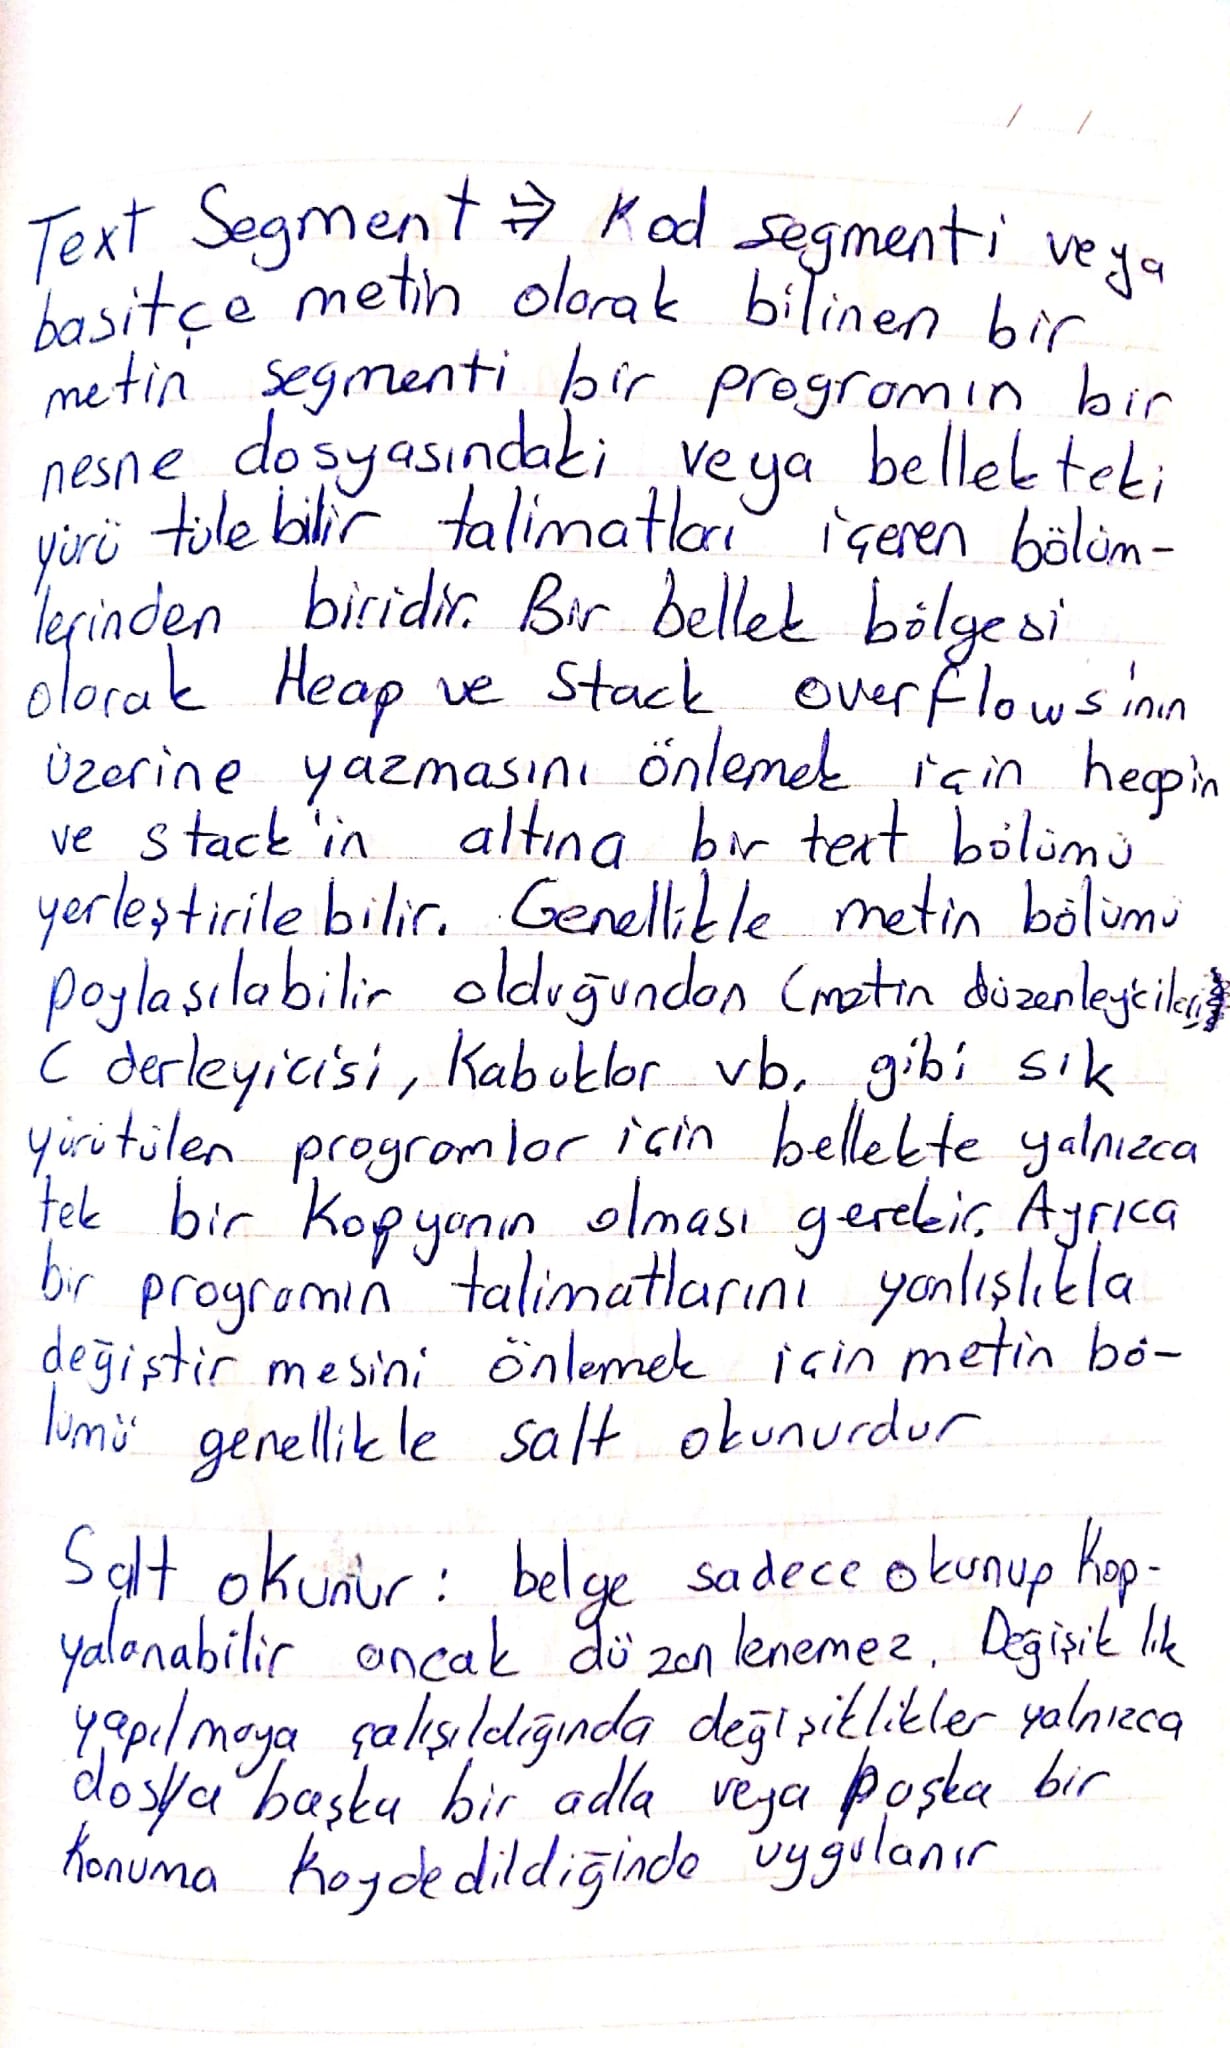 Text Segment ⇒ Kod segmenti veya
basitçe metin olarak bilinen bir
metin segmenti bir programın bir
nesne dosyasındaki veya bellekteki
yürütülebilir talimatları içeren bölüm-
lerinden biridir. Bir bellek bölgesi
olarak Heap ve Stack overflows'ının
üzerine yazmasını önlemek için heap'in
ve stack'in altına bir text bölümü
yerleştirilebilir. Genellikle metin bölümü
paylaşılabilir olduğundan (metin düzenleyicileri,
C derleyicisi, Kabuklar vb. gibi sık
yürütülen programlar için bellekte yalnızca
tek bir Kopyanın olması gerekir. Ayrıca
bir programın talimatlarını yanlışlıkla
değiştirmesini önlemek için metin bö-
lümü genellikle salt okunurdur
Salt okunur: belge sadece okunup Kop-
yalanabilir ancak düzenlenemez. Değişiklik
yapılmaya çalışıldığında değişiklikler yalnızca
dosya başka bir adla veya başka bir
Konuma Kaydedildiğinde uygulanır